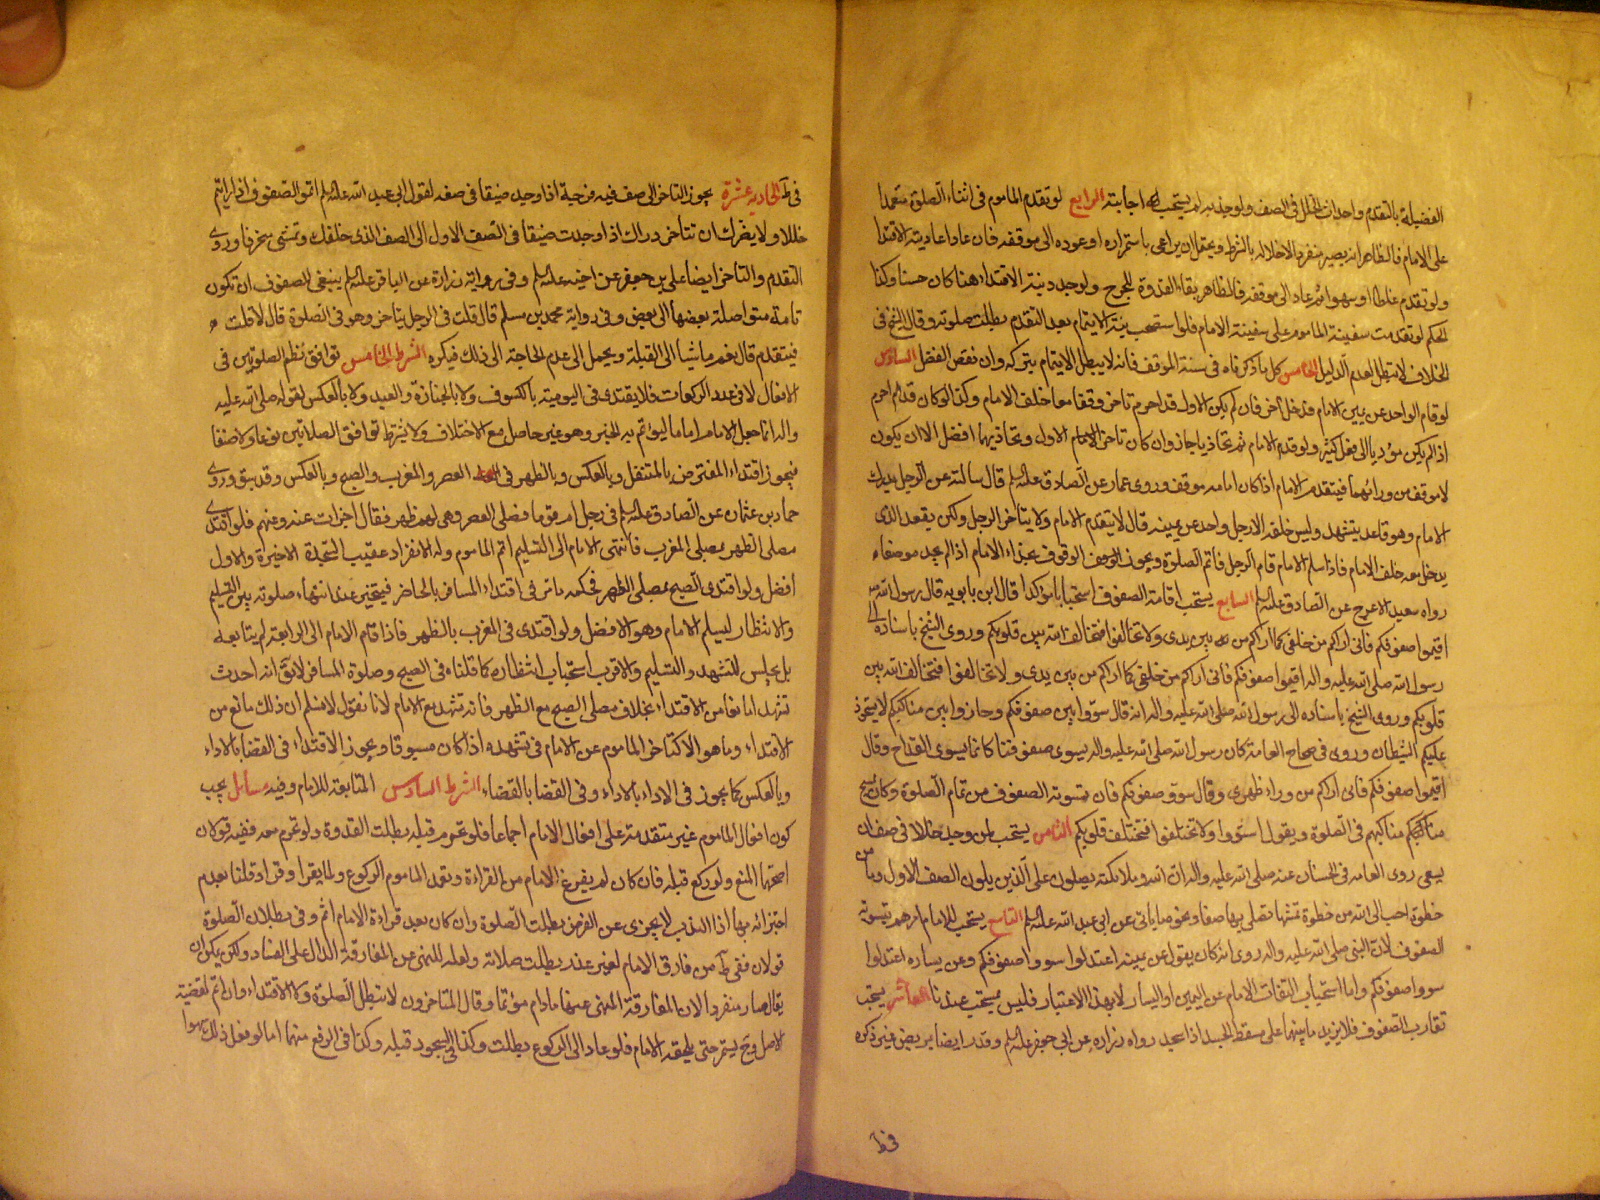 الفضيلة بالتقدم واحداث الخلل في الصف ولو جذبه لم يستحب له اجابته الرابع لو تقدم الماموم في اثناء الصلوة متعمدا
على الامام فالظاهر انه يصير منفردا لاخلاله بالشرط ويحتمل ان يراعى باستمراره او عوده الى موقفه فان عاد اعاد نية الاقتدا
ولو تقدم غلطا او سهوا ثم عاد الى موقفه فالظاهر بقاء القدوة للحرج ولو جدد نية الاقتداء هنا كان حسنا وكذا
الحكم لو تقدمت سفينة الماموم على سفينة الامام فلو استصحب نية الايتمام بعد التقدم بطلت صلوته وقال الشيخ في
الخلاف لا تبطل لعدم الدليل الخامس كل ما ذكرناه في سنة الموقف فانه لا يبطل الايتمام بتركه وان نقص الفضل السادس
لو قام الواحد عن يمين الامام فدخل آخر فان لم يكن الاول قد احرم تاخر ووقفا معا خلف الامام وكذا لو كان قد احرم
اذا لم يكن مؤديا الى فعل كثير ولو قدم الامام ثم تحاذيا جاز وان كان تاخر الامام الاول وتحاذيهما افضل الا ان يكون
لا موقف من ورائهما فيتقدم الامام اذا كان امامه موقف وروى عمار عن الصادق عليه السلم قال سالته عن الرجل يدرك
الامام وهو قاعد يتشهد وليس خلفه الا رجل واحد عن يمينه قال لا يتقدم الامام ولا يتاخر الرجل ولكن يقعد الذي
يدخل معه خلف الامام فاذا سلم الامام قام الرجل فاتم الصلوة ويجوز الوقوف بحذاء الامام اذا لم يجد موضعا
رواه سعيد الاعرج عن الصادق عليه السلم السابع يستحب اقامة الصفوف استحبابا مؤكدا قال ابن بابويه قال رسول الله ص
اقيموا صفوفكم فاني اراكم من خلفي كما اراكم من بين يدي ولا تخالفوا فتخالف الله بين قلوبكم وروى الشيخ باسناده الى
رسول الله صلى الله عليه واله اقيموا صفوفكم فاني اراكم من خلفي كما اراكم من بين يدي ولا تخالفوا فتخالف الله بين
قلوبكم وروى الشيخ باسناده الى رسول الله صلى الله عليه واله انه قال سووا بين صفوفكم وحازوا بين مناكبكم لا يستحوذ
عليكم الشيطان وروى في صحاح العامة كان رسول الله صلى الله عليه واله يسوى صفوفنا كانما يسوى القداح وقال
اقيموا صفوفكم فاني اراكم من وراء ظهري وقال سووا صفوفكم فان تسوية الصفوف من تمام الصلوة وكان يمسح
مناكبهم في الصلوة ويقول استووا ولا تختلفوا فتختلف قلوبكم الثامن يستحب لمن وجد خللا في صف ان
يسعى روى العامة في الحسان عنه صلى الله عليه واله ان الله وملائكته يصلون على الذين يلون الصف الاول وما من
خطوة احب الى الله من خطوة تمشيها تصلي بها صفا ونحوه ما ياتي عن ابي عبد الله عليه السلم التاسع يستحب للامام امرهم بتسوية
الصفوف لان النبي صلى الله عليه واله روى انه كان يقول عن يمينه اعتدلوا سووا صفوفكم وعن يساره اعتدلوا
سووا صفوفكم واما استحباب التفات الامام عن اليمين او اليسار لا بهذا الاعتبار فليس بمستحب عندنا العاشر يستحب
تقارب الصفوف فلا يزيد ما بينهما على مسقط الجسد اذا سجد رواه زرارة عن ابي جعفر عليه السلم وقدر ايضا بمربض عنز ذكره
في ط
في ط الحادية عشرة يجوز التاخر الى صف فيه فرجة اذا وجد ضيقا في صفه لقول ابي عبد الله عليه السلم اتموا الصفوف اذا رايتم
خللا ولا يضرك ان تتاخر وراك اذا وجدت ضيقا في الصف الاول الى الصف الذي خلفك وتمشي منحرفا وروى
التقدم والتاخر ايضا علي بن جعفر عن اخيه عليه السلم وفي رواية زرارة عن الباقر عليه السلم ينبغي للصفوف ان تكون
تامة متواصلة بعضها الى بعض وفي رواية محمد بن مسلم قال قلت في الرجل يتاخر وهو في الصلوة قال لا قلت
فيتقدم قال نعم ماشيا الى القبلة ويحمل الى عدم الحاجة الى ذلك فيكره الشرط الخامس توافق نظم الصلوتين في
الافعال لا في عدد الركعات فلا يقتدى في اليومية بالكسوف ولا بالجنازة والعيد ولا بالعكس لقوله صلى الله عليه
واله انما جعل الامام اماما ليؤتم به الخبر وهو غير حاصل مع الاختلاف ولا يشترط توافق الصلاتين نوعا ولا صنفا
فيجوز اقتداء المفترض بالمتنفل وبالعكس وبالظهر في العصر والمغرب والصبح وبالعكس وقد سبق وروى
حماد بن عثمان عن الصادق عليه السلم في رجل ام قوما فصلى العصر وهي لهم ظهر فقال اجزات عنه وعنهم فلو اقتدى
مصلى الظهر بمصلى المغرب فانتهى الامام الى التسليم اتم الماموم وله الانفراد عقيب السجدة الاخيرة والاول
افضل ولو اقتدى الصبح بمصلى الظهر فحكمه ما مر في اقتداء المسافر بالحاضر فيتخير عند انتهاء صلوته بين التسليم
والانتظار ليسلم الامام وهو الافضل ولو اقتدى في المغرب بالظهر فاذا قام الامام الى الرابعة لم يتابعه
بل يجلس للتشهد والتسليم والاقرب استحباب انتظاره كما قلناه في الصبح وصلوة المسافر لا يق انه احدث
تشهدا مانعا من الاقتداء بخلاف مصلى الصبح مع الظهر فانه تشهد مع الامام لانا نقول لا نسلم ان ذلك مانع من
الاقتداء وما هو الا كتاخر الماموم عن الامام في تشهده اذا كان مسبوقا ويجوز الاقتداء في القضا بالاداء
وبالعكس كما يجوز في الاداء بالاداء وفي القضا بالقضاء الشرط السادس المتابعة للامام وفيه مسائل يجب
كون افعال الماموم غير متقدمة على افعال الامام اجماعا فلو تحرم قبله بطلت القدوة ولو تحرم معه ففيه قولان
اصحهما المنع ولو ركع قبله فان كان لم يفرغ الامام من القراءة وتعمد الماموم الركوع ولما يقرا او قرا وقلنا بعدم
اجتزائه بها اذا الندب لا يجزى عن الفرض بطلت الصلوة وان كان بعد قراءة الامام اثم وفي بطلان الصلوة
قولان ففي ط من فارق الامام لغير عذر بطلت صلاته ولعله للنهي عن المفارقة الدال على الفساد ولكن يمكن ان
يقال صار منفردا لان المفارقة المنهى عنها مادام مؤتما وقال المتاخرون لا تبطل الصلوة ولا الاقتداء وان اثم لقضية
الاصل وح يستمر حتى يلحقه الامام فلو عاد الى الركوع بطلت وكذا السجود قبله وكذا في الرفع منهما اما لو فعل ذلك سهوا